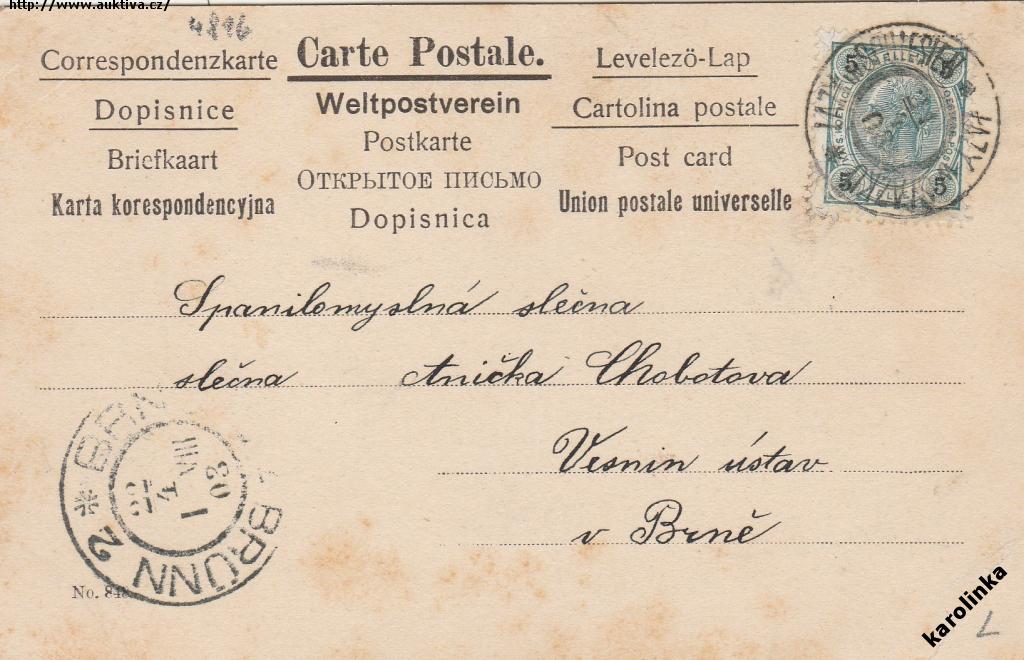 http://www.auktiva.cz/
4816
Correspondenzkarte
Dopisnice
Briefkaart
Karta korespondencyjna
Carte Postale.
Weltpostverein
Postkarte
ОТКРЫТОЕ ПИСЬМО
Dopisnica
Levelező-Lap
Cartolina postale
Post card
Union postale universelle
5 5
5 5
LAZY
Spanilomyslná slečna
slečna Anička Chobotova
Vesnin ústav
v Brně
BRÜNN 2
VIII
03
No. 848
karolinka